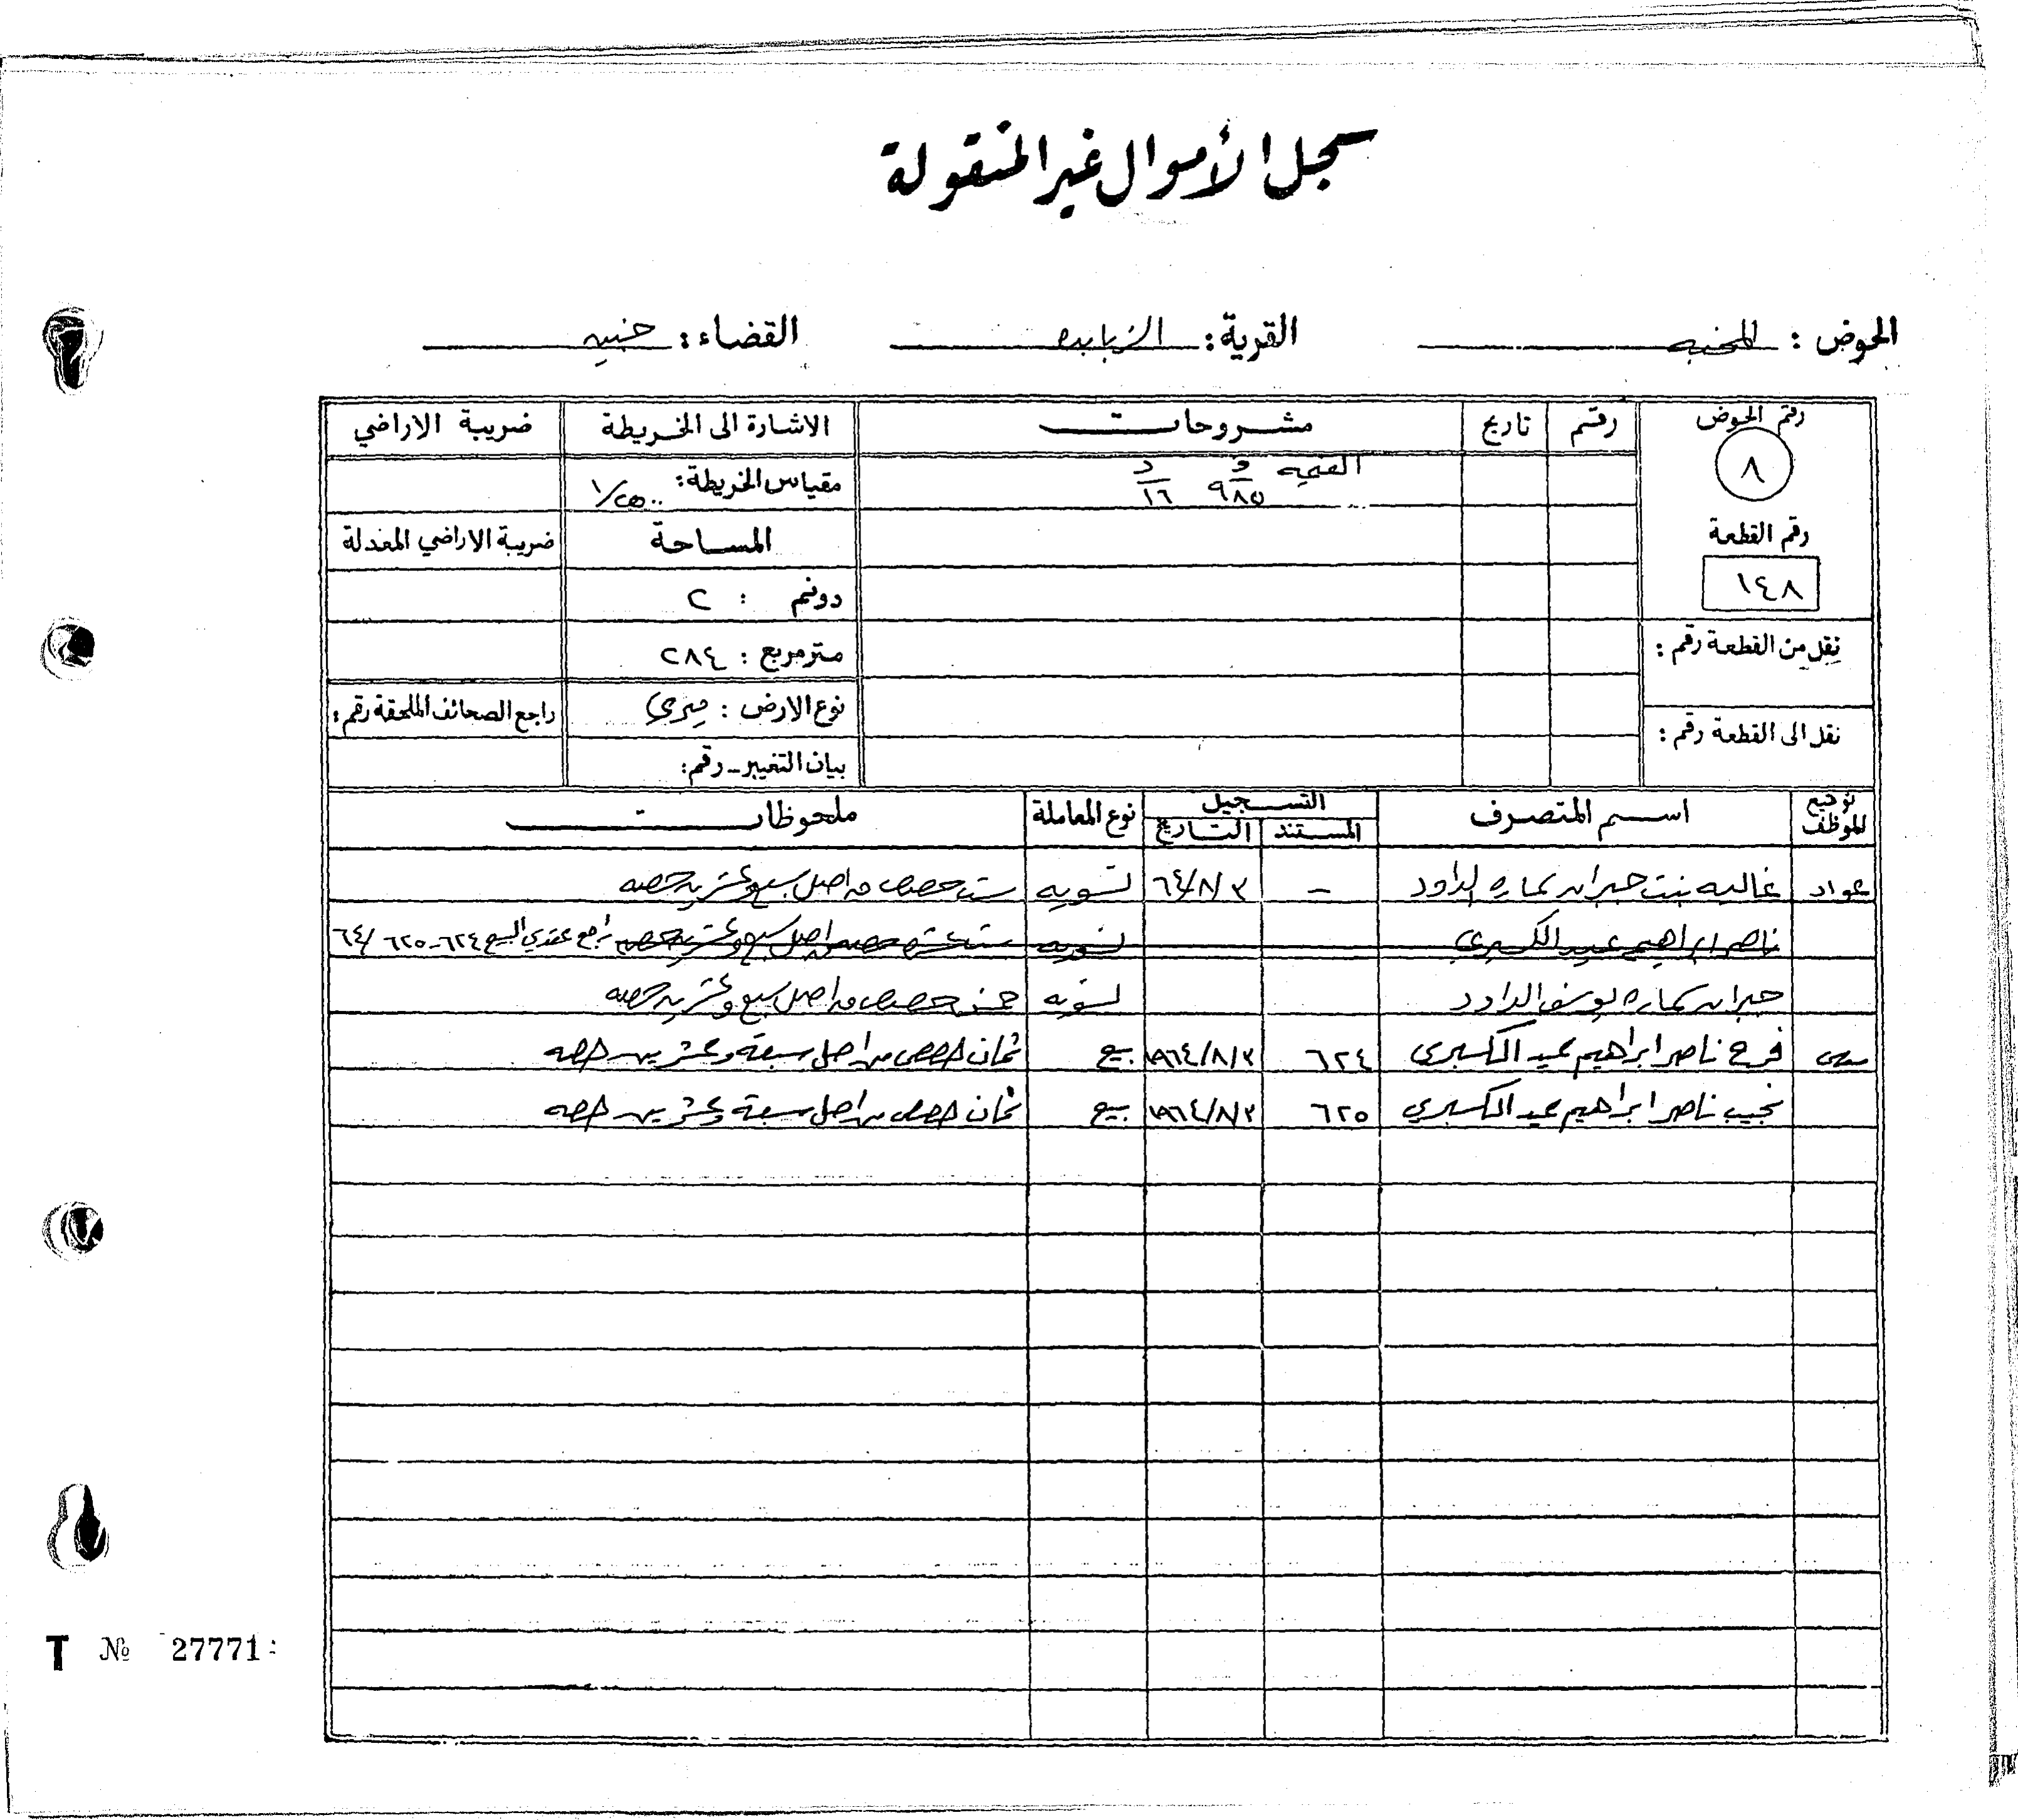 سجل الأموال غير المنقولة
الحوض : المحنبه القرية : الزبابده القضاء : جنين
رقم الحوض رقم تاريخ مشروحات الاشارة الى الخريطة ضريبة الاراضي
٨ القيمه ف ٩٨٥ د ١٦ مقياس الخريطة : ١/٢٥٠٠
رقم القطعة المساحة ضريبة الاراضي المعدلة
١٤٨ دونم : ٢
نقل من القطعة رقم : متر مربع : ٢٨٤
نوع الارض : ميري راجع الصحائف الملحقة رقم :
نقل الى القطعة رقم : بيان التغيير - رقم :
توقيع الموظف اسم المتصرف التسجيل نوع المعاملة ملحوظات
المستند التاريخ
عواد غاليه بنت جبران عماره الداود - ٦٤/٨/٣ تسويه ست حصص من اصل سبع وعشرين حصه
ناصر ابراهيم عبد الكسبري تسويه ست عشره حصه من اصل سبع وعشرين حصه راجع عقدي البيع ٦٢٤-٦٢٥ /٦٤
جبران عماره يوسف الداود تسويه خمس حصص من اصل سبع وعشرين حصه
فرح ناصر ابراهيم عبد الكسبري ٦٢٤ ١٩٦٤/٨/٣ بيع ثمان حصص من اصل سبعة وعشرين حصه
نجيب ناصر ابراهيم عبد الكسبري ٦٢٥ ١٩٦٤/٨/٣ بيع ثمان حصص من اصل سبعة وعشرين حصه
T № 27771